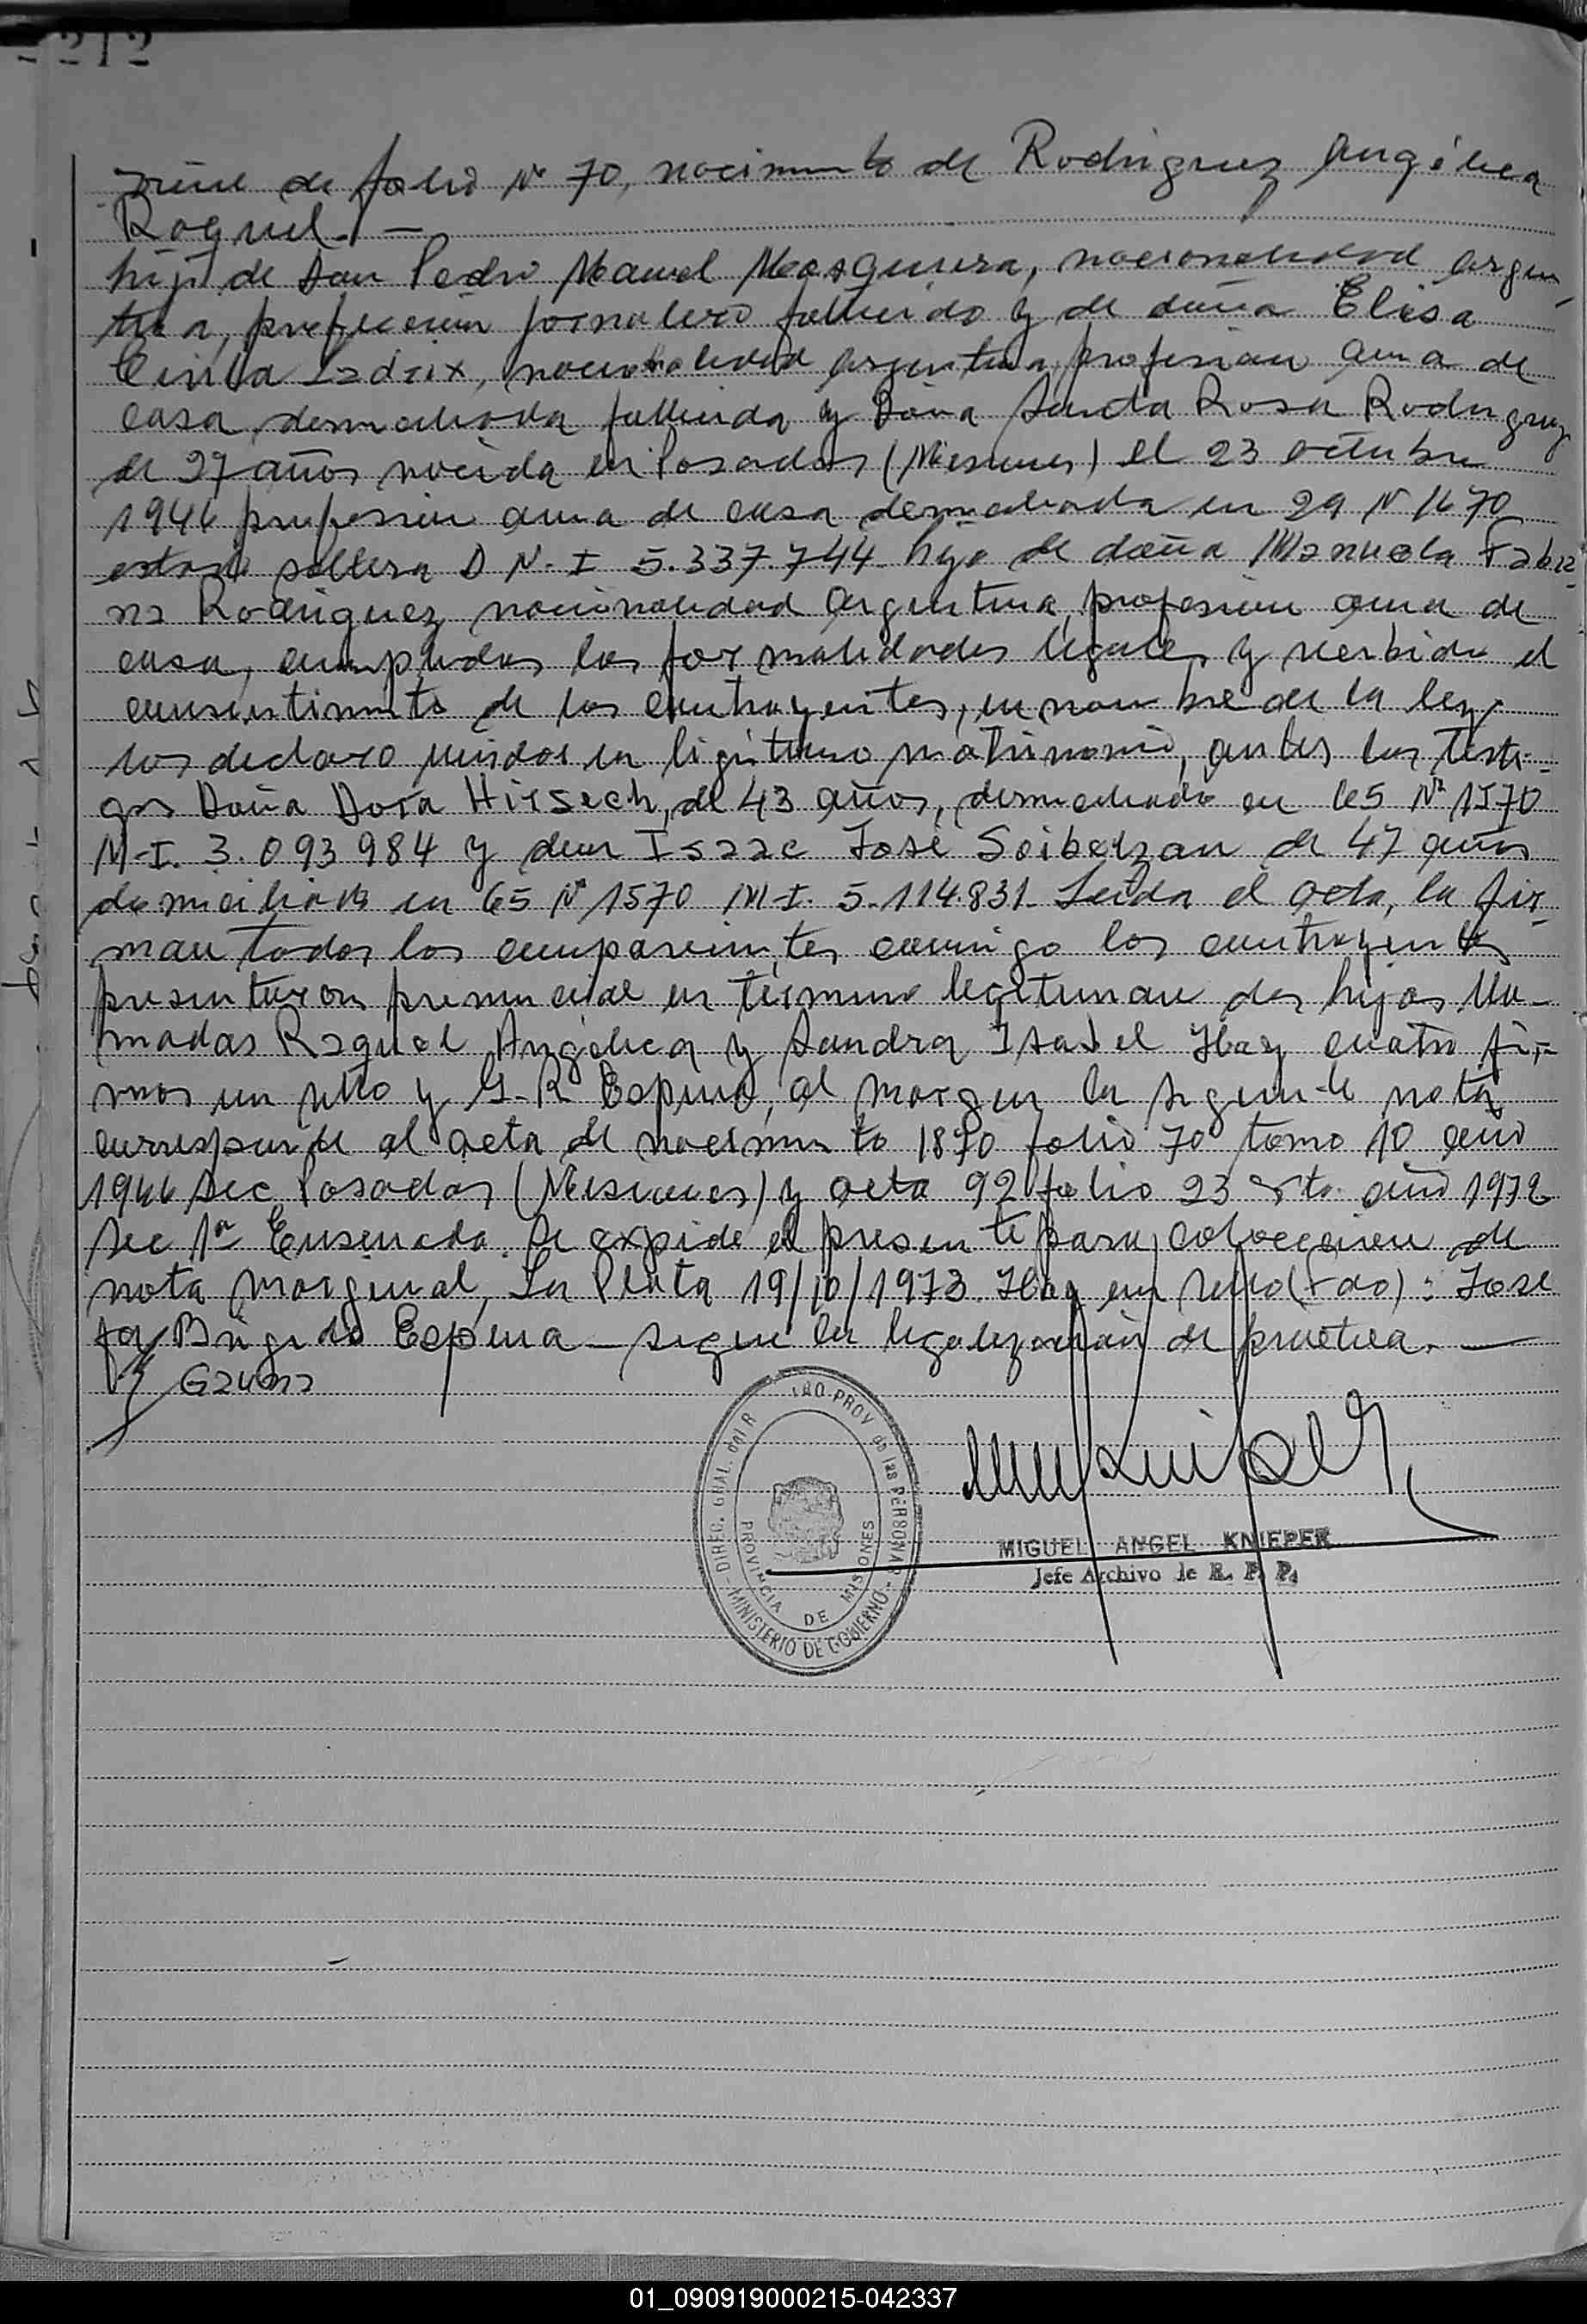 viene de folio Nº 70, nacimiento de Rodriguez Angélica
Raquel. —
hijo de Don Pedro Manuel Mosquera, nacionalidad argen
tina, profesión jornalero fallecido y de doña Elisa
Cirila Ladeix, nacionalidad argentina, profesion ama de
casa, domiciliada fallecida y Doña Santa Rosa Rodriguez
de 27 años nacida en Posadas (Misiones) el 23 octubre
1946 profesion ama de casa domiciliada en 29 Nº 1670
estado soltera D N. I 5.337.744 hija de doña Manuela Fabia
na Rodriguez, nacionalidad argentina, profesion ama de
casa, cumplidas las formalidades legales y recibido el
consentimiento de los contrayentes, en nombre de la ley
los declaro unidos en legitimo matrimonio, antes los testi-
gos Doña Dora Hirsech, de 43 años, domiciliado en 65 Nº 1570
M-I. 3.093984 y don Isaac José Seibelzan de 47 años
domiciliado en 65 Nº 1570 M-I. 5.114.831. Leida el acta, la fir
man todos los comparecientes conmigo los contrayentes
presentaron en termino legitiman dos hijas lla-
madas Raquel Angélica y Sandra Isabel Hay cuatro fir-
mas un sello y G-R Espina, al margen la siguiente nota
corresponde al acta de nacimiento 1870 folio 70 tomo 10 año
1946 Sec Posadas (Misiones) y acta 92 folio 23 vto. año 1972
Sec 1ª Ensenada. Se expide el presente para colocacion de
nota marginal, La Plata 19/10/1973. Hay un sello (Fdo): Jose
fa Brigido Espina — sigue la legalización de practica. —
Gauna
DIREC. GRAL. del R
PROV de las PERSONAS
MINISTERIO DE GOBIERNO
PROVINCIA DE MISIONES
MIGUEL ANGEL KNIEPER
Jefe Archivo de R. P. P.
01_090919000215-042337